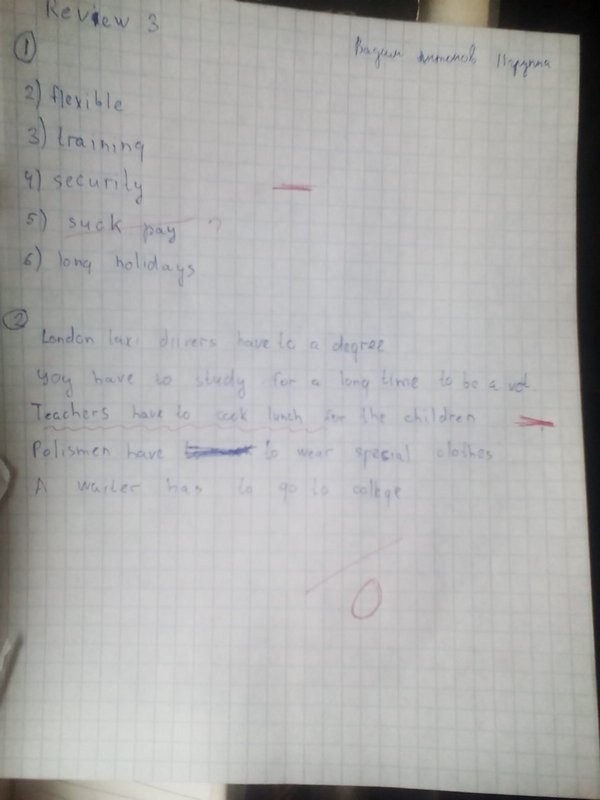 Review 3
Вадим группа
1
2) flexible
3) training
4) security
5) suck pay ?
6) long holidays
2
London taxi drivers have to a degree
you have to study for a long time to be a vet
Teachers have to cook lunch for the children
Polismen have to wear special clothes
A waiter has to go to college
0